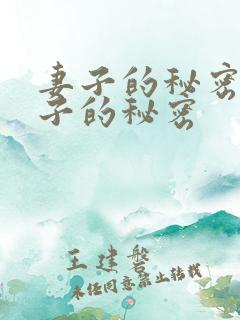 妻子的秘密
子的秘密
王建磐
未经同意禁止转载